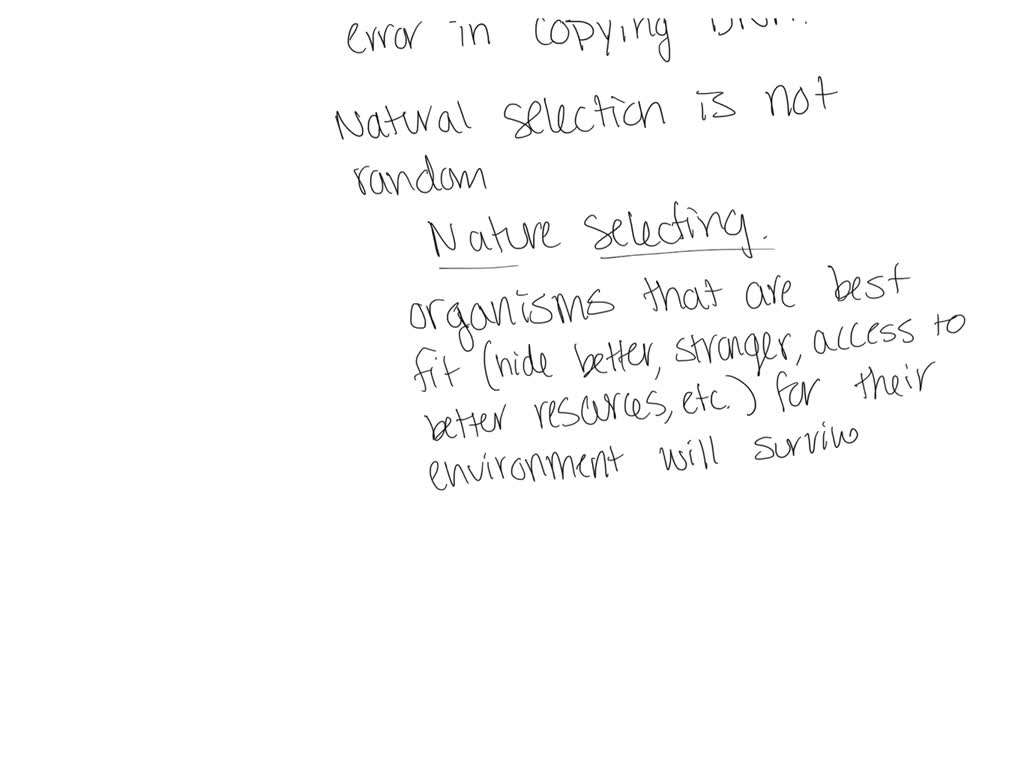 error in copying
Natural selection is not
random
Nature selecting.
organisms that are best
fit (hide better, stronger, access to
better resources, etc.) for their
environment will survive